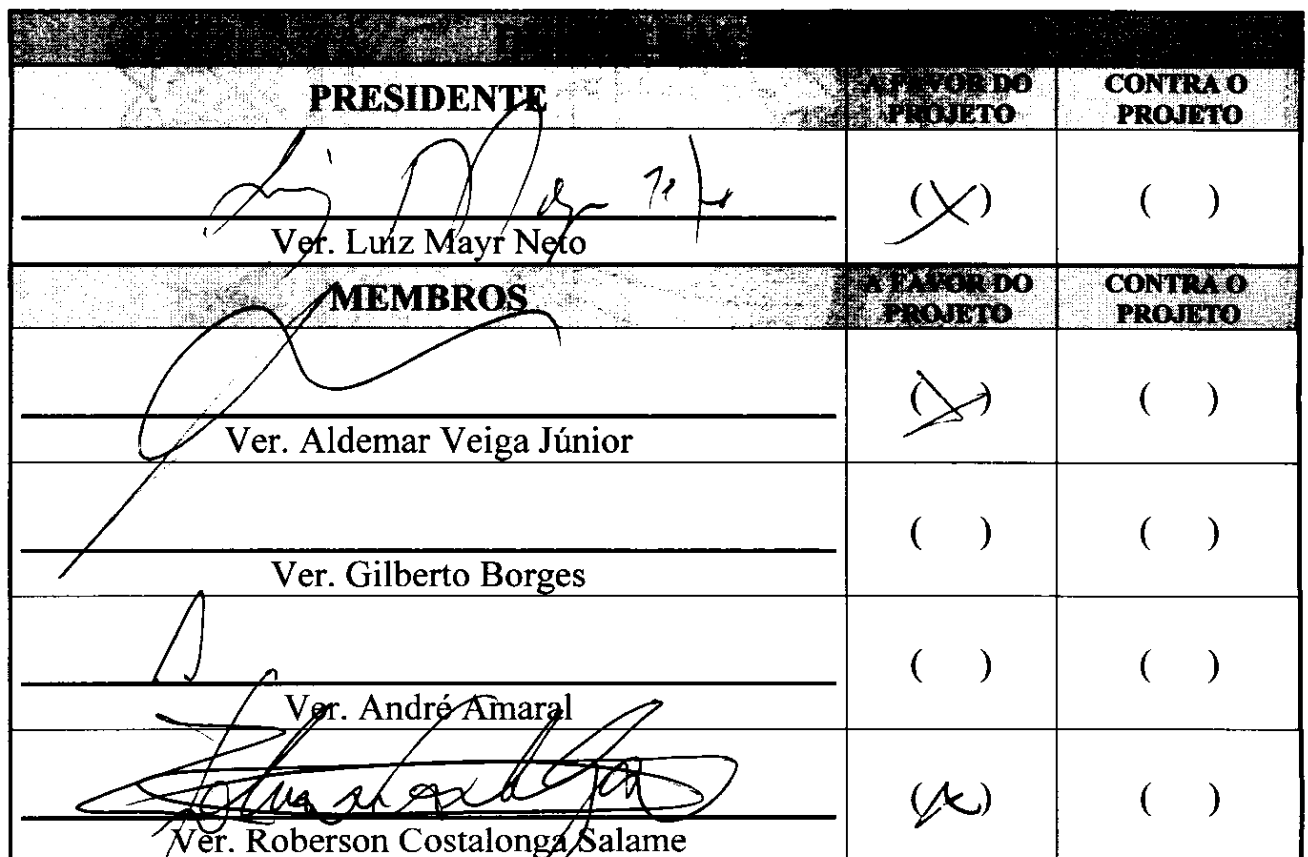 PRESIDENTE A FAVOR DO PROJETO CONTRA O PROJETO
Luiz Mayr Neto (X) ( )
Ver. Luiz Mayr Neto
MEMBROS A FAVOR DO PROJETO CONTRA O PROJETO
(X) ( )
Ver. Aldemar Veiga Júnior
( ) ( )
Ver. Gilberto Borges
( ) ( )
Ver. André Amaral
(X) ( )
Ver. Roberson Costalonga Salame